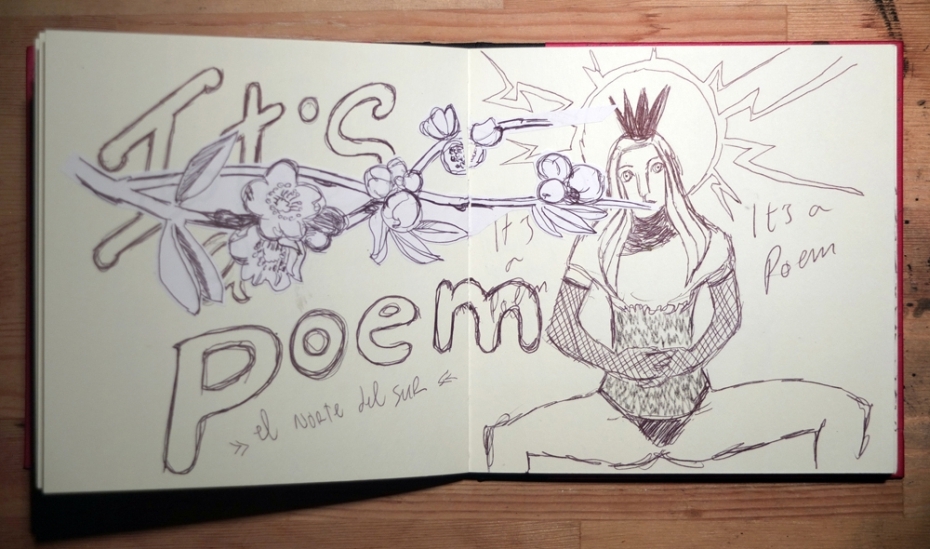 It's
a
Poem
» el NORTE del SUR «
It's
a
Poem
It's a
Poem